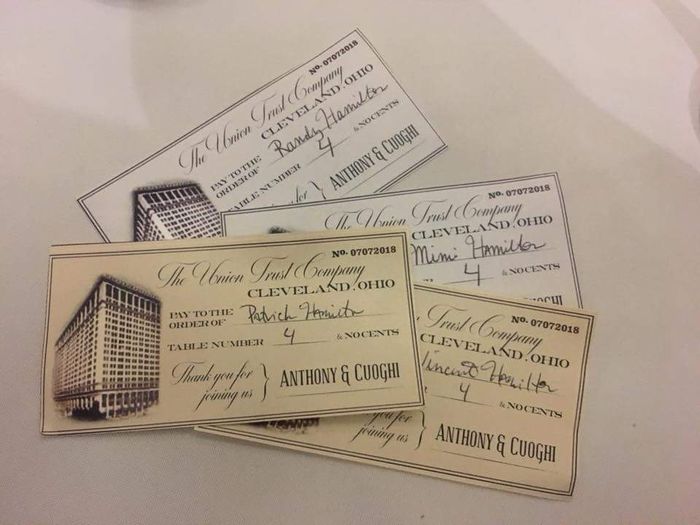 No. 07072018
The Union Trust Company
CLEVELAND, OHIO
PAY TO THE
ORDER OF Randy Hamilton
TABLE NUMBER 4 & NO CENTS
ANTHONY & CUOGHI
No. 07072018
The Union Trust Company
CLEVELAND, OHIO
Mimi Hamilton
4 & NO CENTS
No. 07072018
The Union Trust Company
CLEVELAND, OHIO
PAY TO THE
ORDER OF Patrick Hamilton
TABLE NUMBER 4 & NO CENTS
Thank you for
joining us } ANTHONY & CUOGHI
No. 07072018
Trust Company
CLEVELAND, OHIO
Vincent Hamilton
4 & NO CENTS
you for
joining us } ANTHONY & CUOGHI